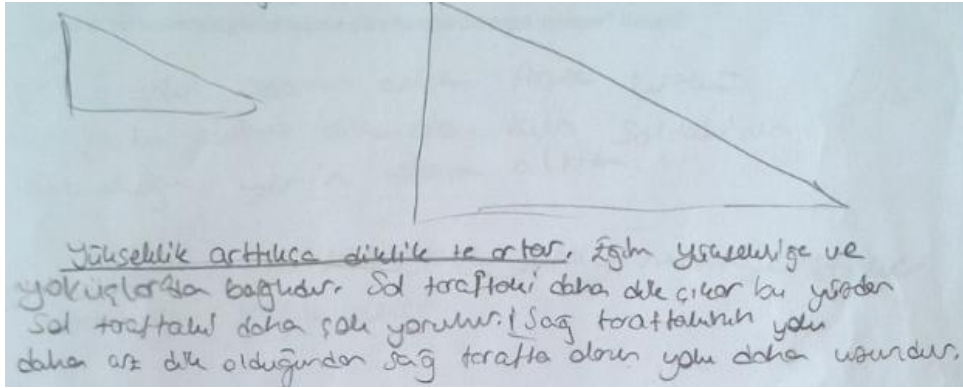 Yükseklik arttıkça diklik te artar. Eğim yüksekliğe ve
yokuşlara bağlıdır. Sol taraftaki daha dik çıkar bu yüzden
Sol taraftaki daha çok yorulur. Sağ taraftakinin yolu
daha az dik olduğundan sağ tarafta olanın yolu daha uzundur.